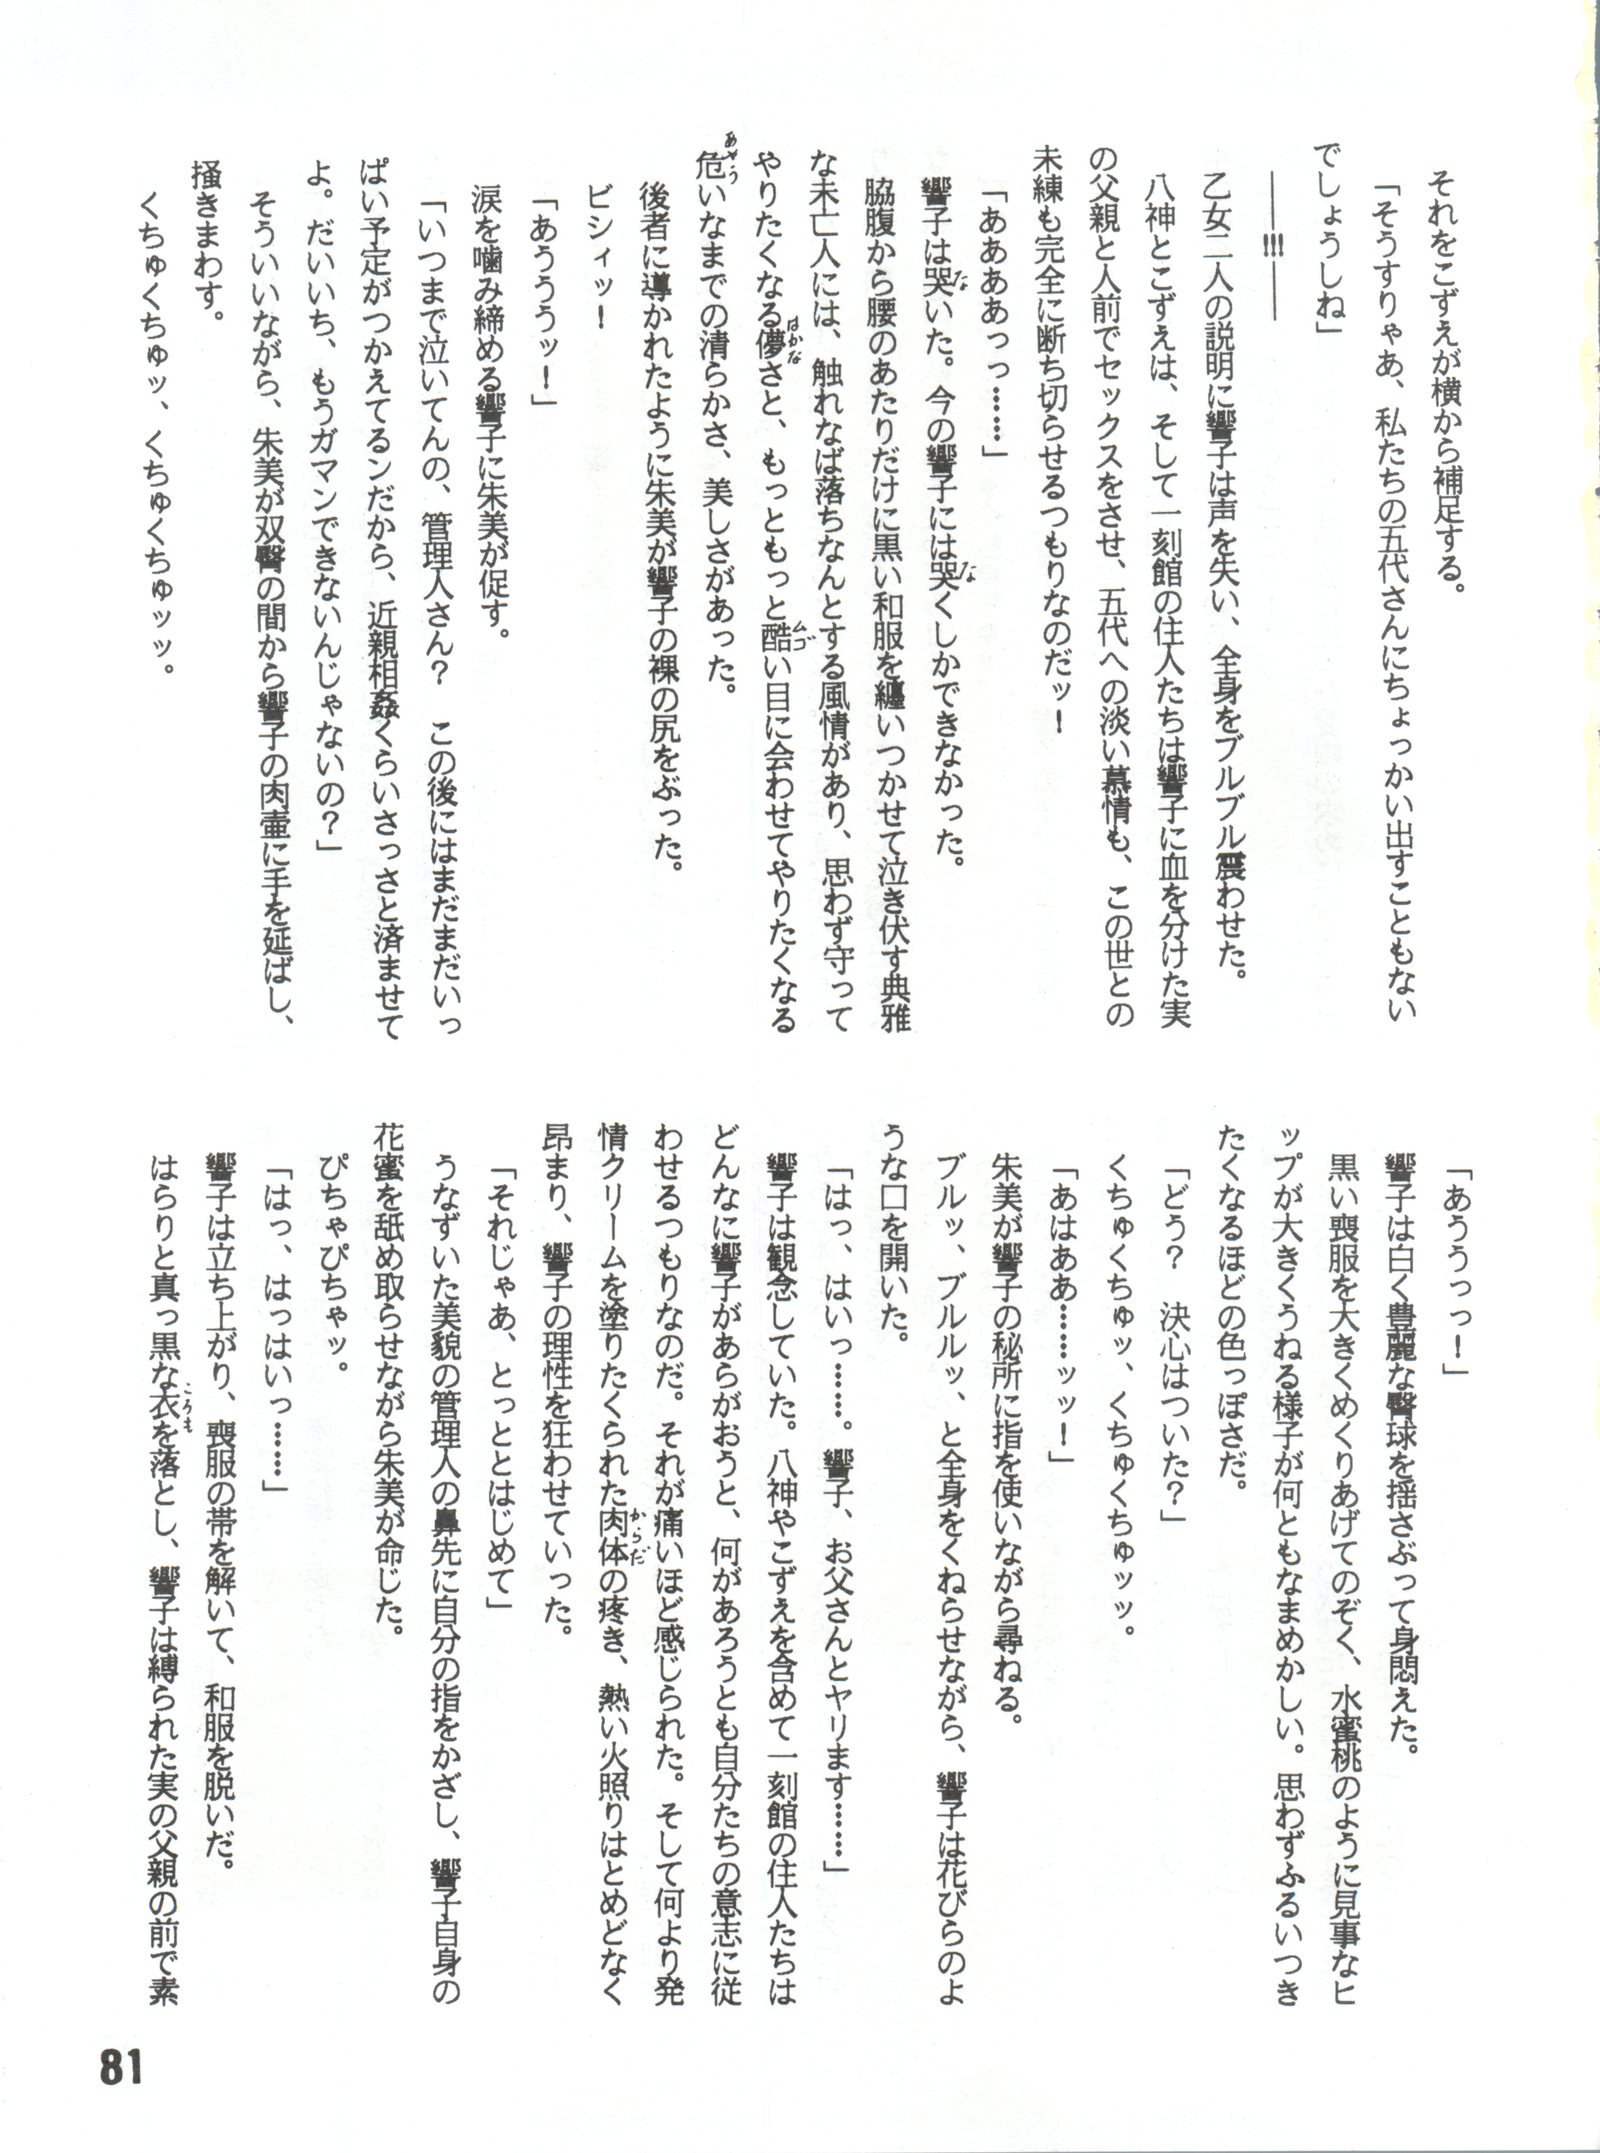 それをこずえが横から補足する。
「そうすりゃあ、私たちの五代さんにちょっかい出すこともない
でしょうしね」
――!!!――
乙女二人の説明に響子は声を失い、全身をブルブル震わせた。
八神とこずえは、そして一刻館の住人たちは響子に血を分けた実
の父親と人前でセックスをさせ、五代への淡い慕情も、この世との
未練も完全に断ち切らせるつもりなのだッ！
「ああああっっ……」
響子は哭いた。今の響子には哭くしかできなかった。
脇腹から腰のあたりだけに黒い和服を纏いつかせて泣き伏す典雅
な未亡人には、触れなば落ちなんとする風情があり、思わず守って
やりたくなる儚さと、もっともっと酷い目に会わせてやりたくなる
危いなまでの清らかさ、美しさがあった。
後者に導かれたように朱美が響子の裸の尻をぶった。
ビシィッ！
「あうううッ！」
涙を噛み締める響子に朱美が促す。
「いつまで泣いてんの、管理人さん？　この後にはまだまだいっ
ぱい予定がつかえてるンだから、近親相姦くらいさっさと済ませて
よ。だいいち、もうガマンできないんじゃないの？」
そういいながら、朱美が双臀の間から響子の肉壷に手を延ばし、
掻きまわす。
くちゅくちゅッ、くちゅくちゅッッ。
「あううっっ！」
響子は白く豊麗な臀球を揺さぶって身悶えた。
黒い喪服を大きくめくりあげてのぞく、水蜜桃のように見事なヒ
ップが大きくうねる様子が何ともなまめかしい。思わずふるいつき
たくなるほどの色っぽさだ。
「どう？　決心はついた？」
くちゅくちゅッ、くちゅくちゅッッ。
「あはああ……ッッ！」
朱美が響子の秘所に指を使いながら尋ねる。
ブルッ、ブルルッ、と全身をくねらせながら、響子は花びらのよ
うな口を開いた。
「はっ、はいっ……。響子、お父さんとヤリます……」
響子は観念していた。八神やこずえを含めて一刻館の住人たちは
どんなに響子があらがおうと、何があろうとも自分たちの意志に従
わせるつもりなのだ。それが痛いほど感じられた。そして何より発
情クリームを塗りたくられた肉体の疼き、熱い火照りはとめどなく
昂まり、響子の理性を狂わせていった。
「それじゃあ、とっととはじめて」
うなずいた美貌の管理人の鼻先に自分の指をかざし、響子自身の
花蜜を舐め取らせながら朱美が命じた。
ぴちゃぴちゃッ。
「はっ、はっはいっ……」
響子は立ち上がり、喪服の帯を解いて、和服を脱いだ。
はらりと真っ黒な衣を落とし、響子は縛られた実の父親の前で素
81